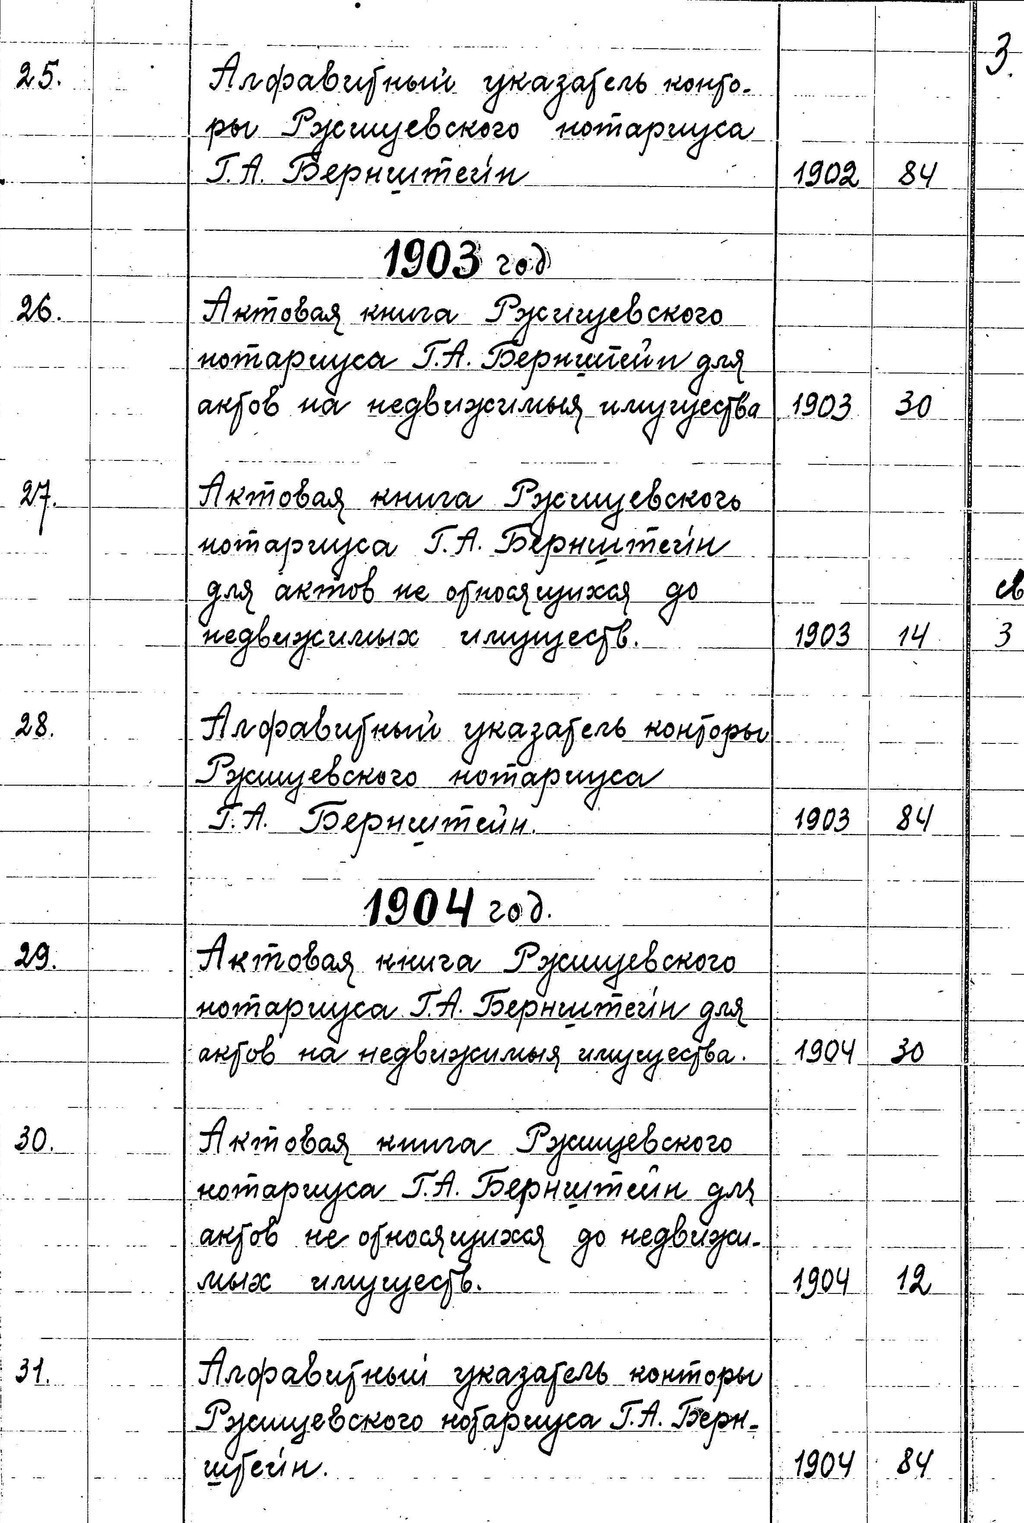 3.
25. Алфавитный указатель конто-
ры Ржищевского нотариуса
Г.А. Бернштейн 1902 84
1903 год
26. Актовая книга Ржищевского
нотариуса Г.А. Бернштейн для
актов на недвижимыя имущества 1903 30
27. Актовая книга Ржищевского
нотариуса Г.А. Бернштейн
для актов не относящихся до
недвижимых имуществ. 1903 14 3
28. Алфавитный указатель конторы
Ржищевского нотариуса
Г.А. Бернштейн. 1903 84
1904 год.
29. Актовая книга Ржищевского
нотариуса Г.А. Бернштейн для
актов на недвижимыя имущества. 1904 30
30. Актовая книга Ржищевского
нотариуса Г.А. Бернштейн для
актов не относящихся до недвижи-
мых имуществ. 1904 12
31. Алфавитный указатель конторы
Ржищевского нотариуса Г.А. Берн-
штейн. 1904 84